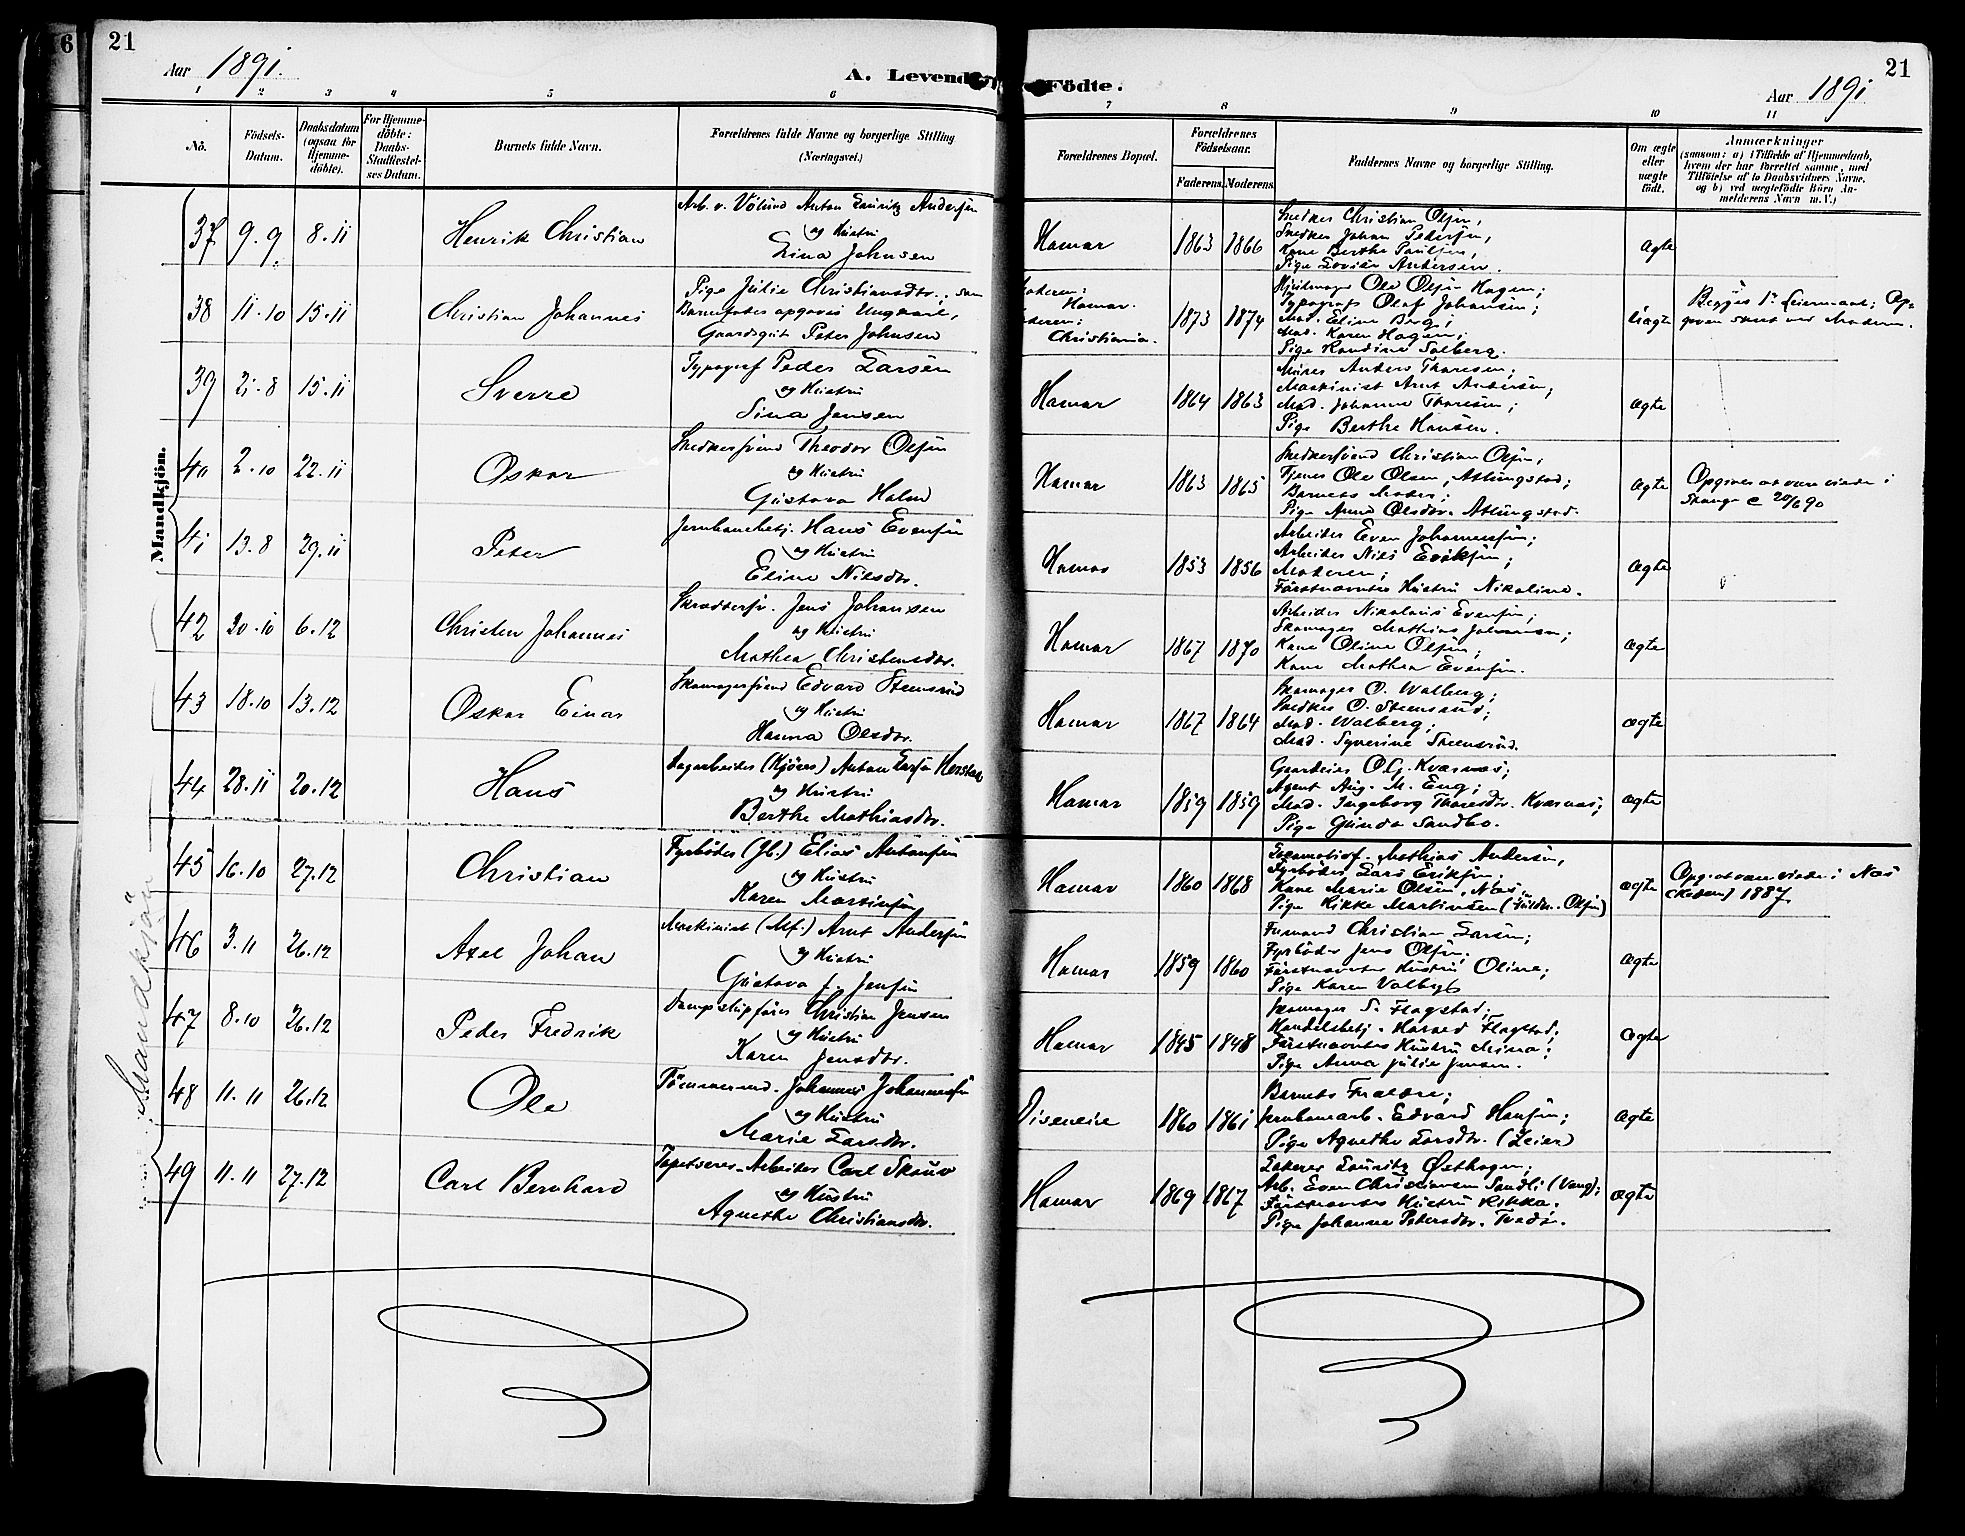 21
Aar 1891.
A. Levende Födte.
Aar 1891
21
1 2 3 4 5 6 7 8 9 10 11
No.
Födsels-Datum.
Daabsdatum (ogsaa för Hjemme-döbte).
For Hjemme-döbte: Daabs-Stadfæstel-ses Datum.
Barnets fulde Navn.
Forældrenes fulde Navne og borgerlige Stilling (Næringsvei.)
Forældrenes Bopæl.
Forældrenes Födselsaar.
Faderens. Moderens.
Faddernes Navne og borgerlige Stilling.
Om ægte eller uægte födt.
Anmærkninger
(saasom: a) i Tilfælde af Hjemmedaab,
hvem der har forrettet samme, med
Tilföielse af to Daabsvidners Navne,
og b) ved uægtefödte Börn An-
melderens Navn m. V.)
Mandkjön.
37 9.9 8.11 Henrik Christian
Arb. v. Völund Anton Lauritz Andersen
og Hustru
Lina Johnsen
Hamar 1863 1866
Snedker Christian Olsen,
Snedker Johan Pedersen,
Kone Berthe Paulsen,
Pige Lovise Andersen.
ægte
38 11.10 15.11 Christian Johannes
Pige Julie Christiansdtr.; som
Barnefader opgives Ungkarl,
Gaardsgut Peter Johnsen
Moderen:
Hamar.
Faderen:
Christiania.
1873 1874
Hjulmager Ole Olsen Hagen;
Typograf Olaf Johansen;
Mad. Eline Berg;
Mad. Karen Hagen;
Pige Randine Solberg.
Uægte
Begges 1ste Leiermaal; Op-
given skret ved Moderen.
39 21.8 15.11 Sverre
Typograf Peder Larsen
og Hustru
Sina Jensen
Hamar 1864 1863
Murer Anders Thoresen;
Maskinist Arnt Andersen;
Mad. Johanne Thoresen;
Pige Berthe Hansen.
ægte
40 2.10 22.11 Oskar
Snedkersvend Theodor Olsen
og Hustru
Gustava Holm
Hamar 1863 1865
Snedkersvend Christian Olsen;
Tjener Ole Olsen, Atlungstad;
Barnets Moder;
Pige Anne Olsdtr. Atlungstad.
ægte
Opgives at være viede i
Stange c 20/6 90
41 13.8 29.11 Peter
Jernbanebetj. Hans Evensen
og Hustru
Eline Nilsdtr.
Hamar 1853 1856
Arbeider Even Johannessen;
Arbeider Nils Eriksen;
Moderen;
Förstnævntes Hustru Nikoline.
ægte
42 30.10 6.12 Christen Johannes
Skræddersv. Jens Johansen
og Hustru
Mathea Christensdtr.
Hamar 1867 1870
Arbeider Nikolaus Evensen;
Skomager Mathias Johannesen;
Kone Oline Olsen;
Kone Mathea Evensen.
ægte
43 18.10 13.12 Oskar Einar
Skomagersvend Edvard Steensrud
og Hustru
Hanna Olsdtr.
Hamar 1867 1864
Skomager O. Walberg;
Snedker O. Steensrud;
Mad. Walberg;
Mad. Syverine Steensrud.
ægte
44 28.11 20.12 Hans
Dagarbeider (Kjörer) Anton Larsen Herstad
og Hustru
Berthe Mathiasdtr.
Hamar 1859 1859
Gaardeier O. G. Kværnæs;
Agent Aug. M. Eng;
Mad. Ingeborg Thoresdtr. Kværnæs;
Pige Gunda Sandbo.
ægte
Mandkjön
45 16.10 27.12 Christian
Fyrböder (Jb.) Elias Antonsen
og Hustru
Karen Martinsen
Hamar 1860 1868
Lokomotivf. Mathias Andersen,
Fyrböder Lars Eriksen;
Kone Marie Olsen, Næs,
Pige Rikke Martinsen
ægte
Opg. at være viede i Næs
(Hedem) 1887.
46 3.11 26.12 Axel Johan
Maskinist (Mf.) Arnt Andersen
og Hustru
Gustava J. Jensen
Hamar 1859 1860
Formand Christian Larsen;
Fyrböder Jens Olsen;
Förstnævntes Hustru Oline;
Pige Karen Valby
ægte
47 8.10 26.12 Peder Fredrik
Dampskipförer Christian Jensen
og Hustru
Karen Jensdtr.
Hamar 1845 1848
Skomager S. Flagstad;
Handelsbetj. Harald Flagstad;
Förstnævntes Hustru Mina;
Pige Anna Julie Jensen.
ægte
48 11.11 26.12 Ole
Tömmermd. Johannes Johannessen
og Hustru
Marie Larsdtr.
Diseneie 1860 1861
Barnets Forældre;
Jernbanearb. Edvard Hansen;
Pige Agnethe Larsdtr. (Leier)
ægte
49 11.11 27.12 Carl Bernhard
Tapetserer-Arbeider Carl Skauv
og Hustru
Agnethe Christiansdtr.
Hamar 1869 1867
Lakerer Lauritz Østhagen;
Arb. Even Christiansen Sandli (Vang);
Förstnævntes Hustru Rikka.
Pige Johanne Petersdtr.
ægte